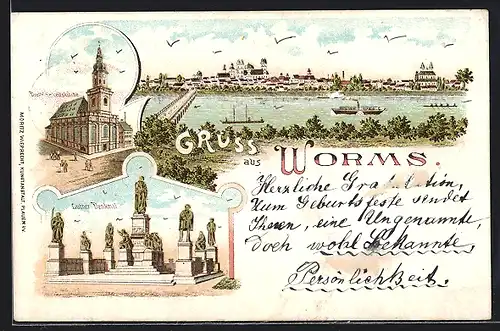 Dreifaltigkeitskirche
GRUSS aus WORMS.
Luther-Denkmal
Herzliche Gratulation,
Zum Geburtsfeste sendet
Ihnen, eine Ungenannte,
Doch wohl Bekannte
Persönlichkeit.
MORITZ WIEPRECHT, KUNSTANSTALT, PLAUEN i/V